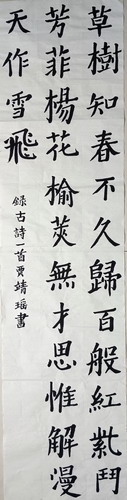 草樹知春不久歸百般紅紫鬥
芳菲楊花榆莢無才思惟解漫
天作雪飛
錄古詩一首賈靖瑶書